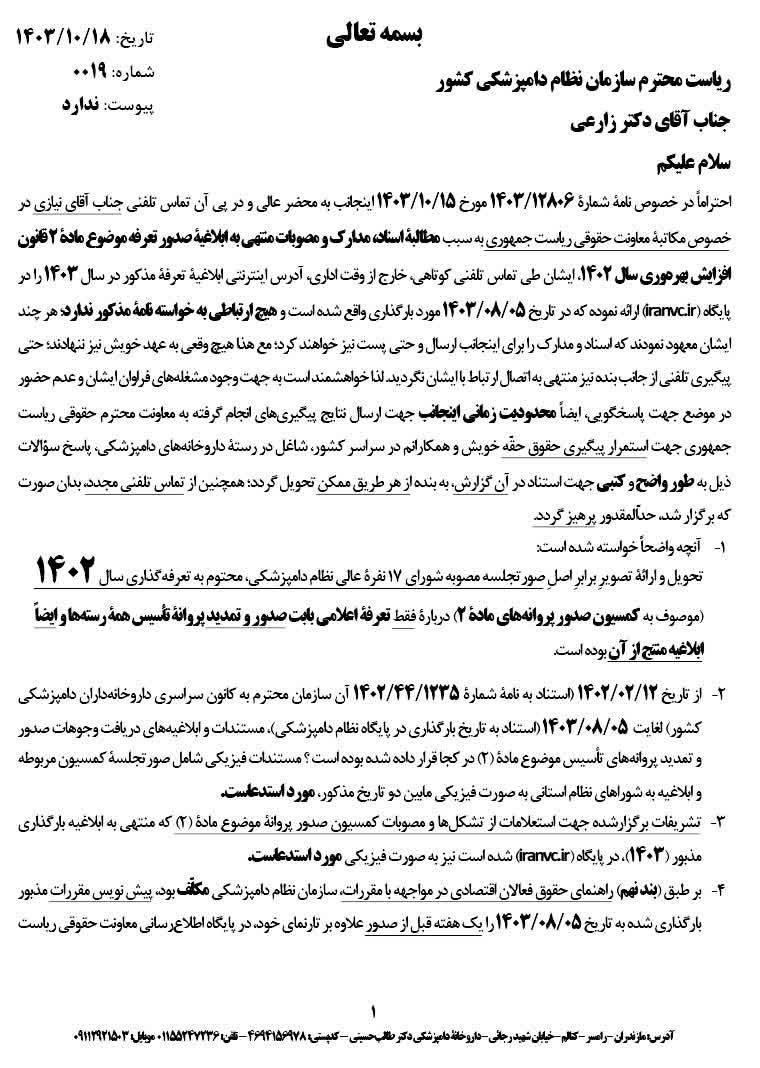 بسمه تعالی
تاریخ: ۱۴۰۳/۱۰/۱۸
شماره: ۰۰۱۹
پیوست: ندارد
ریاست محترم سازمان نظام دامپزشکی کشور
جناب آقای دکتر زارعی
سلام علیکم
احتراماً در خصوص نامهٔ شمارهٔ ۱۴۰۳/۱۲۸۰۶ مورخ ۱۴۰۳/۱۰/۱۵ اینجانب به محضر عالی و در پی آن تماس تلفنی جناب آقای نیازی در
خصوص مکاتبهٔ معاونت حقوقی ریاست جمهوری به سبب مطالبهٔ اسناد، مدارک و مصوبات منتهی به ابلاغیهٔ صدور تعرفه موضوع مادهٔ ۲ قانون
افزایش بهره‌وری سال ۱۴۰۲، ایشان طی تماس تلفنی کوتاهی، خارج از وقت اداری، آدرس اینترنتی ابلاغیهٔ تعرفهٔ مذکور در سال ۱۴۰۳ را در
پایگاه (iranvc.ir) ارائه نموده که در تاریخ ۱۴۰۳/۰۸/۰۵ مورد بارگذاری واقع شده است و هیچ ارتباطی به خواسته نامهٔ مذکور ندارد؛ هر چند
ایشان معهود نمودند که اسناد و مدارک را برای اینجانب ارسال و حتی پست نیز خواهند کرد؛ مع هذا هیچ وقعی به عهد خویش نیز ننهادند؛ حتی
پیگیری تلفنی از جانب بنده نیز منتهی به اتصال ارتباط با ایشان نگردید. لذا خواهشمند است به جهت وجود مشغله‌های فراوان ایشان و عدم حضور
در موضع جهت پاسخگویی، ایضاً محدودیت زمانی اینجانب جهت ارسال نتایج پیگیری‌های انجام گرفته به معاونت محترم حقوقی ریاست
جمهوری جهت استمرار پیگیری حقوق حقّه خویش و همکارانم در سراسر کشور، شاغل در رستهٔ داروخانه‌های دامپزشکی، پاسخ سؤالات
ذیل به طور واضح و کتبی جهت استناد در آن گزارش، به بنده از هر طریق ممکن تحویل گردد؛ همچنین از تماس تلفنی مجدد، بدان صورت
که برگزار شد، حدّالمقدور پرهیز گردد.
۱- آنچه واضحاً خواسته شده است:
تحویل و ارائهٔ تصویر برابر اصلِ صورتجلسه مصوبه شورای ۱۷ نفرهٔ عالی نظام دامپزشکی، محتوم به تعرفه‌گذاری سال ۱۴۰۲
(موصوف به کمسیون صدور پروانه‌های مادهٔ ۲) دربارهٔ فقط تعرفهٔ اعلامی بابت صدور و تمدید پروانهٔ تأسیس همهٔ رسته‌ها و ایضاً
ابلاغیه منتج از آن بوده است.
۲- از تاریخ ۱۴۰۲/۰۲/۱۲ (استناد به نامهٔ شمارهٔ ۱۴۰۲/۴۴/۱۲۳۵ آن سازمان محترم به کانون سراسری داروخانه‌داران دامپزشکی
کشور) لغایت ۱۴۰۳/۰۸/۰۵ (استناد به تاریخ بارگذاری در پایگاه نظام دامپزشکی)، مستندات و ابلاغیه‌های دریافت وجوهات صدور
و تمدید پروانه‌های تأسیس موضوع مادهٔ (۲) در کجا قرار داده شده بوده است؟ مستندات فیزیکی شامل صورتجلسهٔ کمسیون مربوطه
و ابلاغیه به شوراهای نظام استانی به صورت فیزیکی مابین دو تاریخ مذکور، مورد استدعاست.
۳- تشریفات برگزارشده جهت استعلامات از تشکل‌ها و مصوبات کمسیون صدور پروانهٔ موضوع مادهٔ (۲) که منتهی به ابلاغیه بارگذاری
مذبور (۱۴۰۳)، در پایگاه (iranvc.ir) شده است نیز به صورت فیزیکی مورد استدعاست.
۴- بر طبق (بند نهم) راهنمای حقوق فعالان اقتصادی در مواجهه با مقررات، سازمان نظام دامپزشکی مکلّف بود، پیش نویس مقررات مذبور
بارگذاری شده به تاریخ ۱۴۰۳/۰۸/۰۵ را یک هفته قبل از صدور علاوه بر تارنمای خود، در پایگاه اطلاع‌رسانی معاونت حقوقی ریاست
۱
آدرس: مازندران – رامسر – کتالم – خیابان شهید رجائی – داروخانهٔ دامپزشکی دکتر طالب‌حسینی – کدپستی: ۴۶۹۴۱۵۶۹۷۸ – تلفن: ۰۱۱۵۵۲۴۷۲۳۶ موبایل: ۰۹۱۱۲۹۲۱۵۰۳